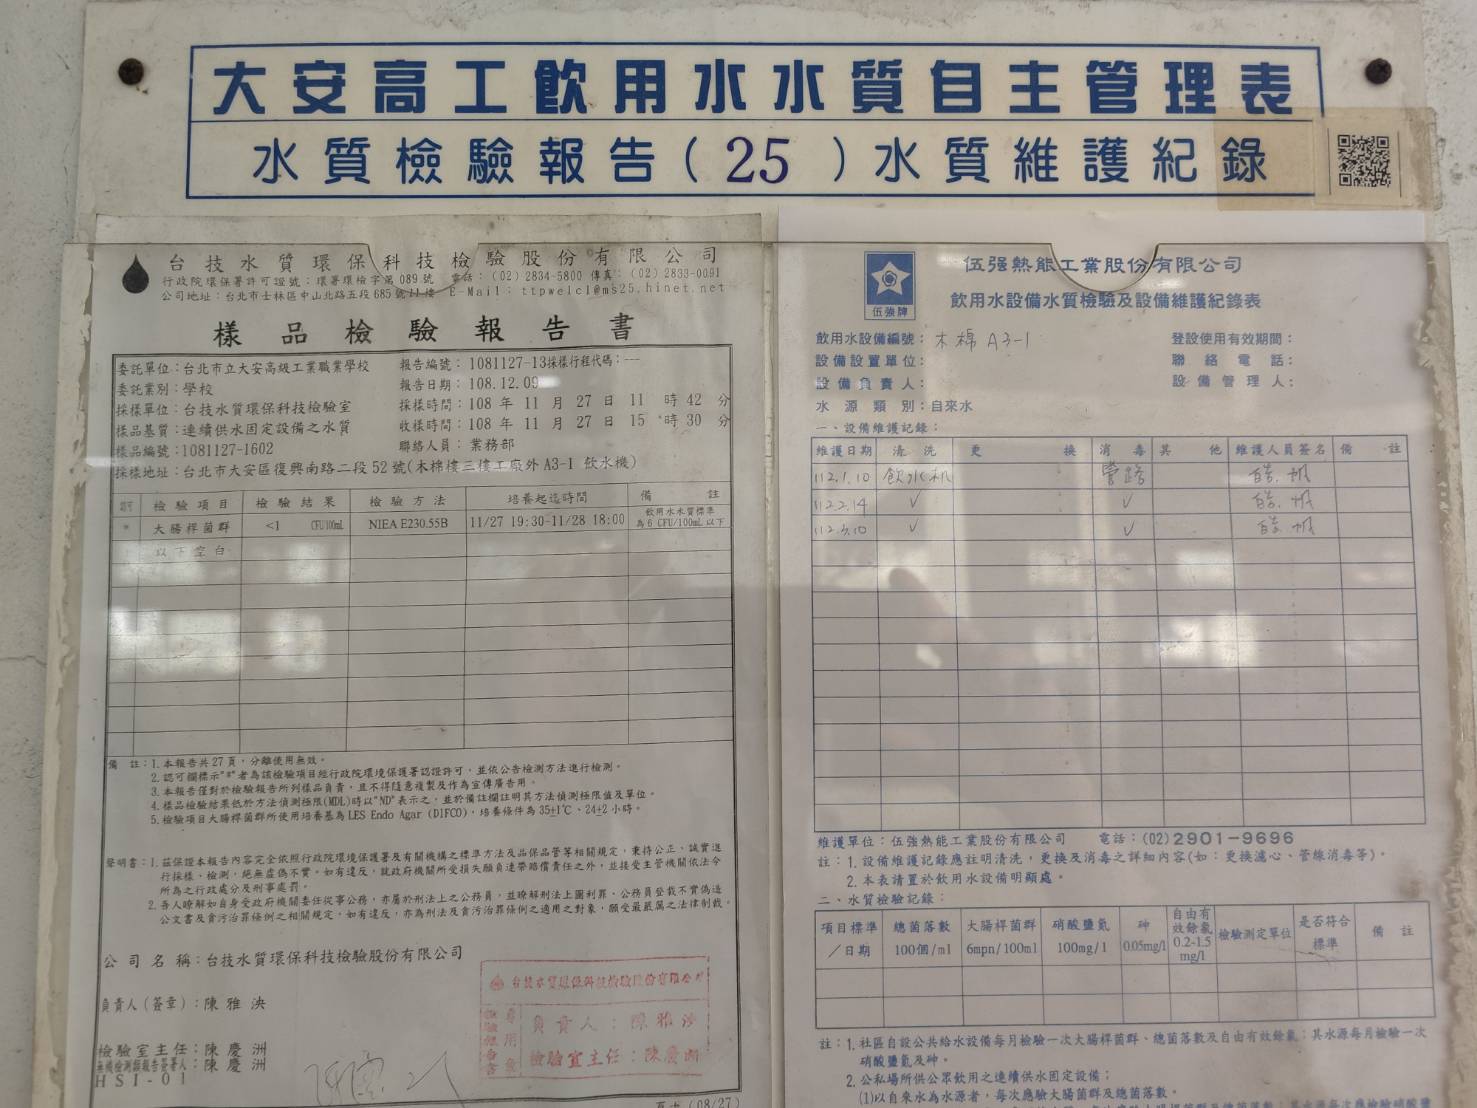 大安高工飲用水水質自主管理表
水質檢驗報告(25)水質維護紀錄
台技水質環保科技檢驗股份有限公司
行政院環保署許可證號：環署環檢字第089號 電話：(02) 2834-5800 傳真：(02) 2833-0091
公司地址：台北市士林區中山北路五段685號11樓 E-Mail：ttpwelcl@ms25.hinet.net
樣品檢驗報告書
委託單位：台北市立大安高級工業職業學校 報告編號：1081127-13採樣行程代碼：---
委託業別：學校 報告日期：108.12.09
採樣單位：台技水質環保科技檢驗室 採樣時間：108 年 11 月 27 日 11 時 42 分
樣品基質：連續供水固定設備之水質 收樣時間：108 年 11 月 27 日 15 時 30 分
樣品編號：1081127-1602 聯絡人員：業務部
採樣地址：台北市大安區復興南路二段52號(木棉樓三樓工廠外A3-1 飲水機)
認可 檢驗項目 檢驗結果 檢驗方法 培養起迄時間 備註
* 大腸桿菌群 <1 CFU/100mL NIEA E230.55B 11/27 19:30-11/28 18:00 飲用水水質標準為6 CFU/100mL以下
以下空白
備 註：1.本報告共27頁，分離使用無效。
2.認可欄標示"*"者為該檢驗項目經行政院環境保護署認證許可，並依公告檢測方法進行檢測。
3.本報告僅對於檢驗報告所列樣品負責，且不得隨意複製及作為宣傳廣告用。
4.樣品檢驗結果低於方法偵測極限(MDL)時以"ND"表示之，並於備註欄註明其方法偵測極限值及單位。
5.檢驗項目大腸桿菌群所使用培養基為LES Endo Agar (DIFCO)，培養條件為35±1℃、24±2小時。
聲明書：1.茲保證本報告內容完全依照行政院環境保護署及有關機構之標準方法及品保品管等相關規定，秉持公正、誠實進
行採樣、檢測，絕無虛偽不實。如有違反，就政府機關所受損失願負連帶賠償責任之外，並接受主管機關依法令
所為之行政處分及刑事處罰。
2.吾人瞭解如自身受政府機關委任從事公務，亦屬於刑法上之公務員，並瞭解刑法上圖利罪、公務員登載不實偽造
公文書及貪污治罪條例之相關規定，如有違反，亦為刑法及貪污治罪條例之適用之對象，願受最嚴厲之法律制裁。
公司名稱：台技水質環保科技檢驗股份有限公司
負責人(簽章)：陳雅泱
檢驗室主任：陳慶洲
無機檢測類報告簽署人：陳慶洲
HSI-01
台技水質環保科技檢驗股份有限公司
檢驗報告書專用章
負責人：陳雅泱
檢驗室主任：陳慶洲
(08/27)
伍強牌
伍强熱能工業股份有限公司
飲用水設備水質檢驗及設備維護紀錄表
飲用水設備編號：木棉 A3-1 登設使用有效期間：
設備設置單位： 聯絡電話：
設備負責人： 設備管理人：
水源類別：自來水
一、設備維護記錄：
維護日期 清洗 更換 消毒 其他 維護人員簽名 備註
112.1.10 飲水机 管路
112.2.14 ✓ ✓
112.3.10 ✓ ✓
維護單位：伍強熱能工業股份有限公司 電話：(02)2901-9696
註：1.設備維護記錄應註明清洗，更換及消毒之詳細內容(如：更換濾心、管線消毒等)。
2.本表請置於飲用水設備明顯處。
二、水質檢驗記錄：
項目標準/日期 總菌落數100個/ml 大腸桿菌群6mpn/100ml 硝酸鹽氮100mg/l 砷0.05mg/l 自由有效餘氯0.2-1.5mg/l 檢驗測定單位 是否符合標準 備註
註：1.社區自設公共給水設備每月檢驗一次大腸桿菌群、總菌落數及自由有效餘氯；其水源每月檢驗一次
硝酸鹽氮及砷。
2.公私場所供公眾飲用之連續供水固定設備；
(1)以自來水為水源者，每次應驗大腸桿菌群及總菌落數。